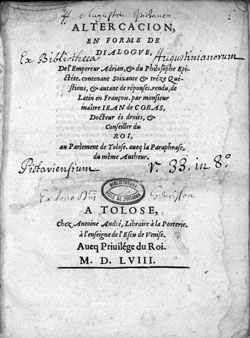 Augustin
ALTERCACION,
EN FORME DE
DIALOGVE,
Ex Bibliotheca Augustinianorum
De l'Empereur Adrian, & du Philosophe Epi-
ctéte. contenant Soixante & tréze Qué-
stions, & autant de réponses. rendu, de
Latin en François. par monsieur
maître IEAN de CORAS,
Docteur és droits, &
Conseiller du
ROI,
au Parlement de Tolose. aueq la Paraphrase,
du même Autheur.
Pictaviensium
v. 33. in 8°
Ex dono
BIBLIOTHEQUE
DE POITIERS
A TOLOSE,
Chez Antoine André, Libraire à la Porterie.
à l'enseigne de l'Escu de Venise.
Aueq Priuilége du Roi.
M. D. LVIII.